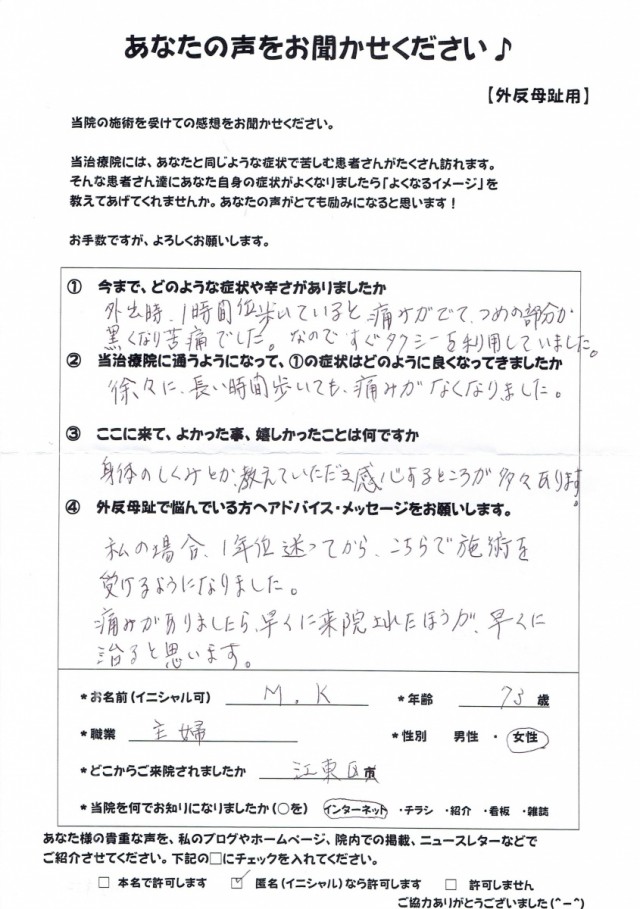 あなたの声をお聞かせください♪
【外反母趾用】
当院の施術を受けての感想をお聞かせください。
当治療院には、あなたと同じような症状で苦しむ患者さんがたくさん訪れます。
そんな患者さん達にあなた自身の症状がよくなりましたら「よくなるイメージ」を
教えてあげてくれませんか。あなたの声がとても励みになると思います！
お手数ですが、よろしくお願いします。
① 今まで、どのような症状や辛さがありましたか
外出時、1時間位歩いていると、痛みがでて、つめの部分が
黒くなり苦痛でした。なのですぐタクシーを利用していました。
② 当治療院に通うようになって、①の症状はどのように良くなってきましたか
徐々に、長い時間歩いても、痛みがなくなりました。
③ ここに来て、よかった事、嬉しかったことは何ですか
身体のしくみとか、教えていただき感心するところが多々あります。
④ 外反母趾で悩んでいる方へアドバイス・メッセージをお願いします。
私の場合、1年位迷ってから、こちらで施術を
受けるようになりました。
痛みがありましたら、早くに来院されたほうが、早くに
治ると思います。
*お名前（イニシャル可） M.K *年齢 73 歳
*職業 主婦 *性別 男性 ・ 女性
*どこからご来院されましたか 江東区市
*当院を何でお知りになりましたか（○を） インターネット ・チラシ ・紹介 ・看板 ・雑誌
あなた様の貴重な声を、私のブログやホームページ、院内での掲載、ニュースレターなどで
ご紹介させてください。下記の□にチェックを入れてください。
□ 本名で許可します ☑ 匿名（イニシャル）なら許可します □ 許可しません
ご協力ありがとうございました(^－^)